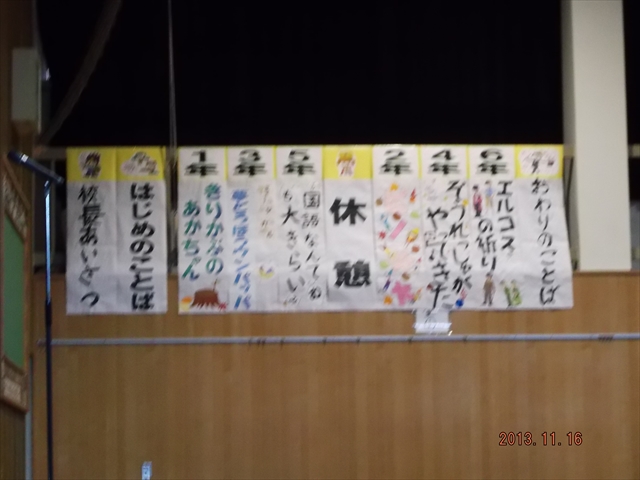 校長あいさつ
はじめのことば
1年
きりかぶの
あかちゃん
3年
5年
国語なんて
大きらい
休憩
2年
4年
ぞうれっしゃが
やってきた
6年
エルコス
の祈り
おわりのことば
2013.11.16